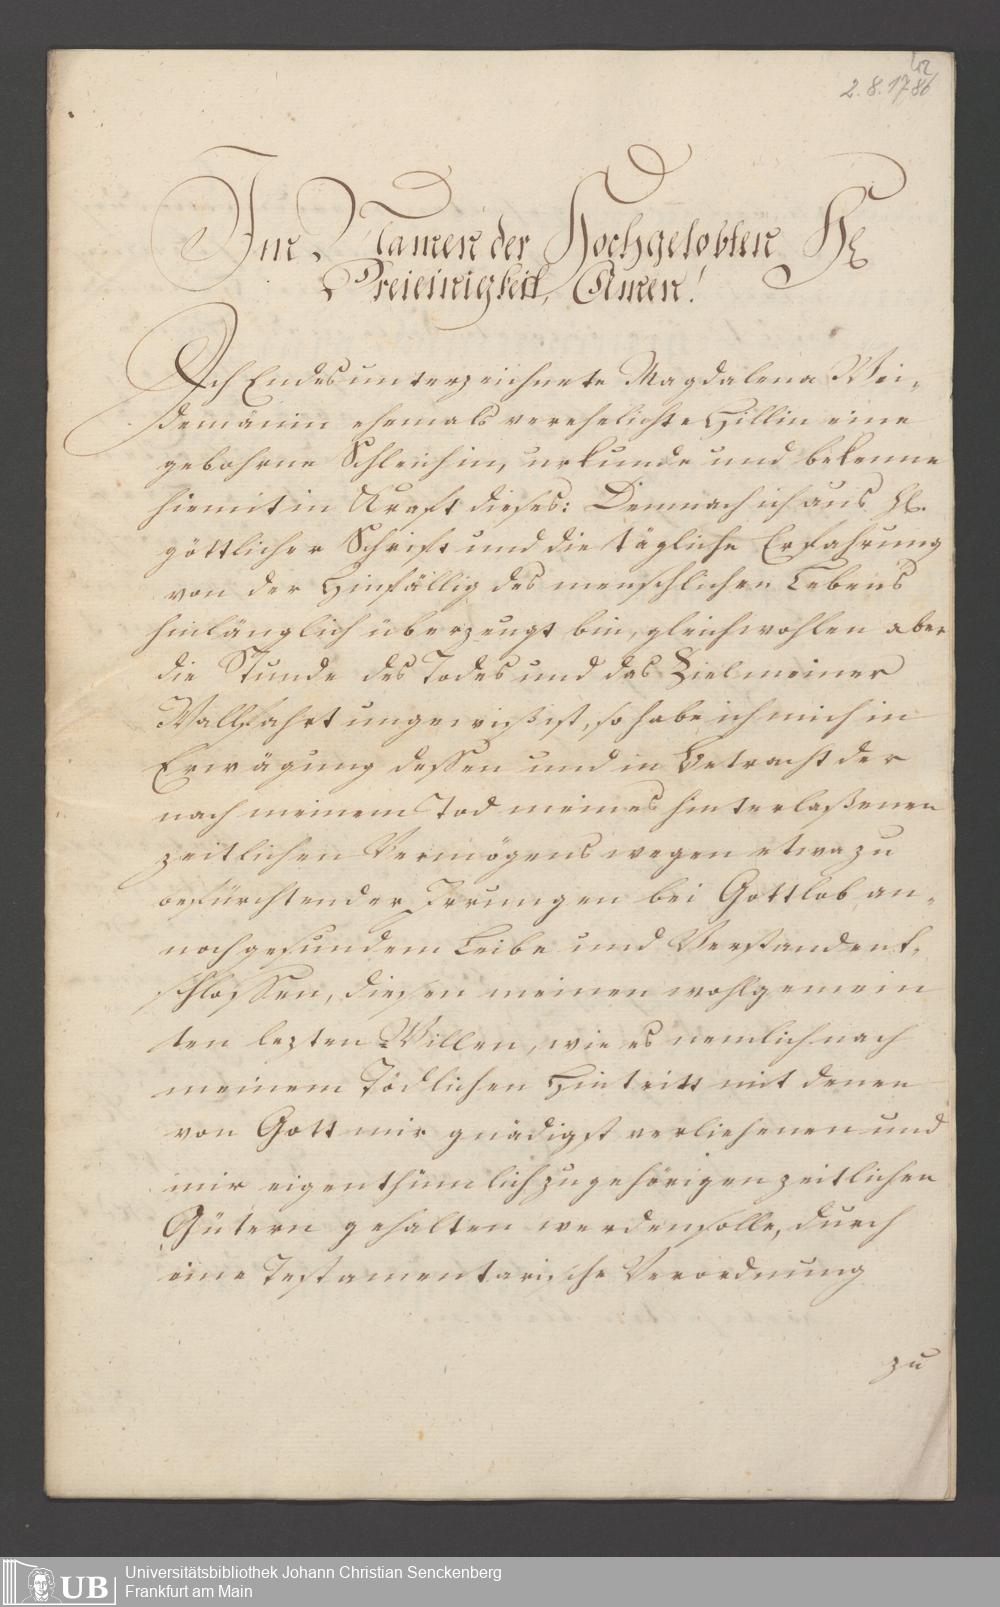 2. 8. 1786
Im Namen der Hochgelobten Hl
Dreieinigkeit, Amen!
Ich Endesunterzeichnete Magdalena Wei-
demännin ehemals verehelichte Hillin eine
gebohrne Schleichin, urkunde und bekenne
hiemit in Kraft dieses: Demnach ich aus Hl.
göttlicher Schrift und die tägliche Erfahrung
von der Hinfällig des menschlichen Lebens
hinlänglich überzeugt bin, gleichwohlen aber
die Stunde des Todes und das Ziel meiner
Wallfahrt ungewiß ist, so habe ich mich in
Erwägung dessen und in Betracht der
nach meinem Tod meines hinterlaßenen
zeitlichen Vermögens wegen etwa zu
befürchtender Irrungen bei Gottlob an-
noch gesundem Leibe und Verstand ent-
schlossen, diesen meinen wohlgemein
ten lezten Willen, wie es nemlich nach
meinem Tödlichen Hintritt mit denen
von Gott mir gnädigst verliehenen und
mir eigenthümlich zugehörigen zeitlichen
Gütern gehalten werden solle, durch
eine Testamentarische Verordnung
zu
UB
Universitätsbibliothek Johann Christian Senckenberg
Frankfurt am Main